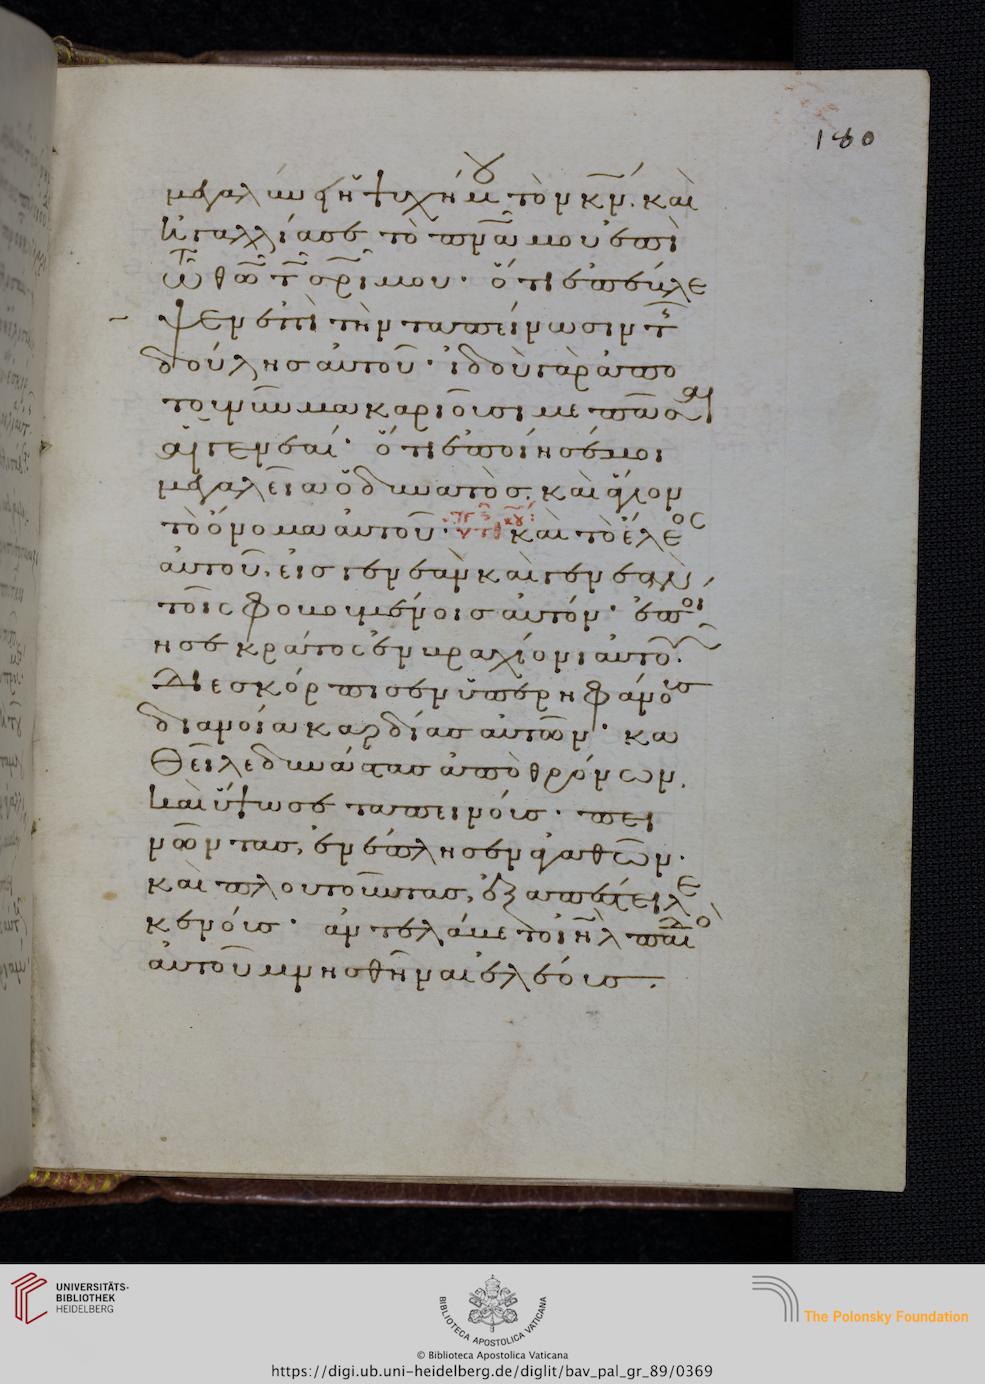 180
μεγαλύνει ἡ ψυχή μου τὸν κν̅. καὶ
ἠγαλλίασε τὸ πνα̅ μου ἐπὶ
τῶ θῶ τῶ σρι̅ μου· ὅτι ἐπέβλε
ψεν ἐπὶ τὴν ταπείνωσιν τῆς
δούλησ αὐτοῦ· ἰδοὺ γὰρ ἀπο
τοῦ νῦν μακαριοῦσι με πᾶσαι
αἱ γενεαί· ὅτι ἐποίησέ μοι
μεγαλεῖα ὁ δυνατὸσ. καὶ ἅγιον
τὸ ὄνομα αὐτοῦ· καὶ τὸ ἔλεος
αὐτοῦ, εἰσ γενεὰν καὶ γενεὰν,
τοῖς φοβουμένοισ αὐτόν· ἐποί
ησε κράτος ἐν βραχίονι αὐτοῦ.
Διεσκόρπισεν ὑπερηφάνους
διανοία καρδίασ αὐτῶν· κα
θεῖλε δυνάστασ ἀπὸ θρόνων.
καὶ ὕψωσε ταπεινούσ· πει
νῶντασ, ἐνέπλησεν ἀγαθῶν.
καὶ πλουτοῦντασ, ἐξαπέστειλε
κενούσ· ἀντελάβετο ιη̅λ παιδὸς
αὐτοῦ μνησθῆναι ἐλέουσ.
UNIVERSITÄTS-
BIBLIOTHEK
HEIDELBERG
BIBLIOTECA APOSTOLICA VATICANA
The Polonsky Foundation
© Biblioteca Apostolica Vaticana
https://digi.ub.uni-heidelberg.de/diglit/bav_pal_gr_89/0369